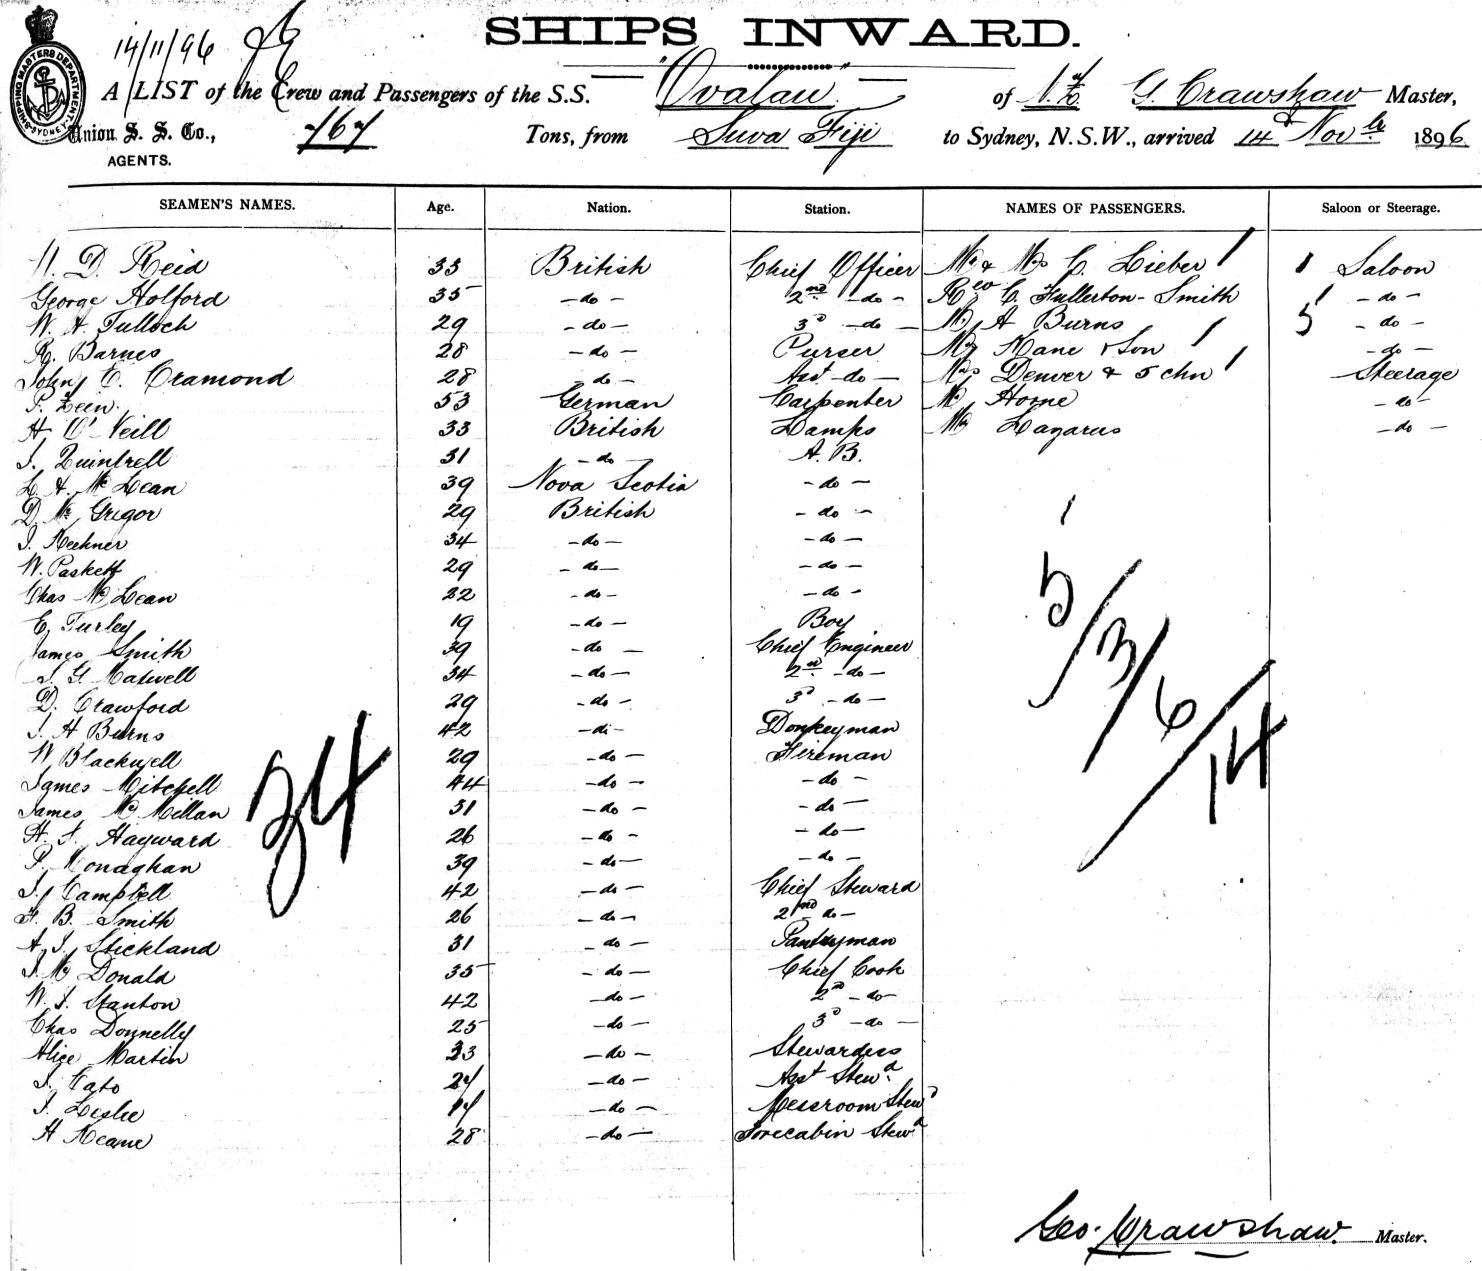 SHIPS INWARD.
14/11/96
A LIST of the Crew and Passengers of the S.S. "Ovalau" of N.Z. G. Crawshaw Master,
Union S. S. Co., 767 Tons, from Suva Fiji to Sydney, N.S.W., arrived 14th Novbr 1896
AGENTS.
SHIPPING MASTERS DEPARTMENT SYDNEY
SEAMEN'S NAMES. Age. Nation. Station. NAMES OF PASSENGERS. Saloon or Steerage.
D. Reid 33 British Chief Officer Mr & Mrs C. Lieber 1 1 Saloon
George Holford 35 -do- 2nd -do- Rev C. Fullerton-Smith 1 -do-
W. H. Tulloch 29 -do- 3d -do- A Burns 5 -do-
R. Barnes 28 -do- Purser Kane & Son 1 -do-
John E. Cramond 28 -do- Asst -do- Mrs Denver & 5 chn 1 Steerage
P. Zein. 53 German Carpenter Mr Horne -do-
H. O'Neill 33 British Lamps Mr Lazarus -do-
J. Quintrell 31 -do- A. B.
L. H. McLean 39 Nova Scotia -do-
D. McGrigor 29 British -do-
J. Kechner 34 -do- -do-
W. Paskett 29 -do- -do-
Chas McLean 22 -do- -do-
E. Turley 19 -do- Boy
James Smith 39 -do- Chief Engineer
J. G. Maxwell 34 -do- 2nd -do-
D. Crawford 29 -do- 3d -do-
J. H Burns 42 -do- Donkeyman
W. Blackwell 29 -do- Fireman
James Mitchell 44 -do- -do-
James McMillan 31 -do- -do-
H. J. Hayward 26 -do- -do-
P. Monaghan 39 -do- -do-
J. Campbell 42 -do- Chief Steward
F. B. Smith 26 -do- 2nd -do-
A. J. Stickland 31 -do- Pantryman
J. McDonald 35 -do- Chief Cook
W. J. Stanton 42 -do- 2nd -do-
Chas Donnelly 25 -do- 3d -do-
Alice Martin 33 -do- Stewardess
J. Cato 24 -do- Asst Stewd
J. Leslie 17 -do- Messroom Stewd
H Keane 28 -do- Forecabin Stewd
34
1
5/3/6/14
Geo. Crawshaw. Master.